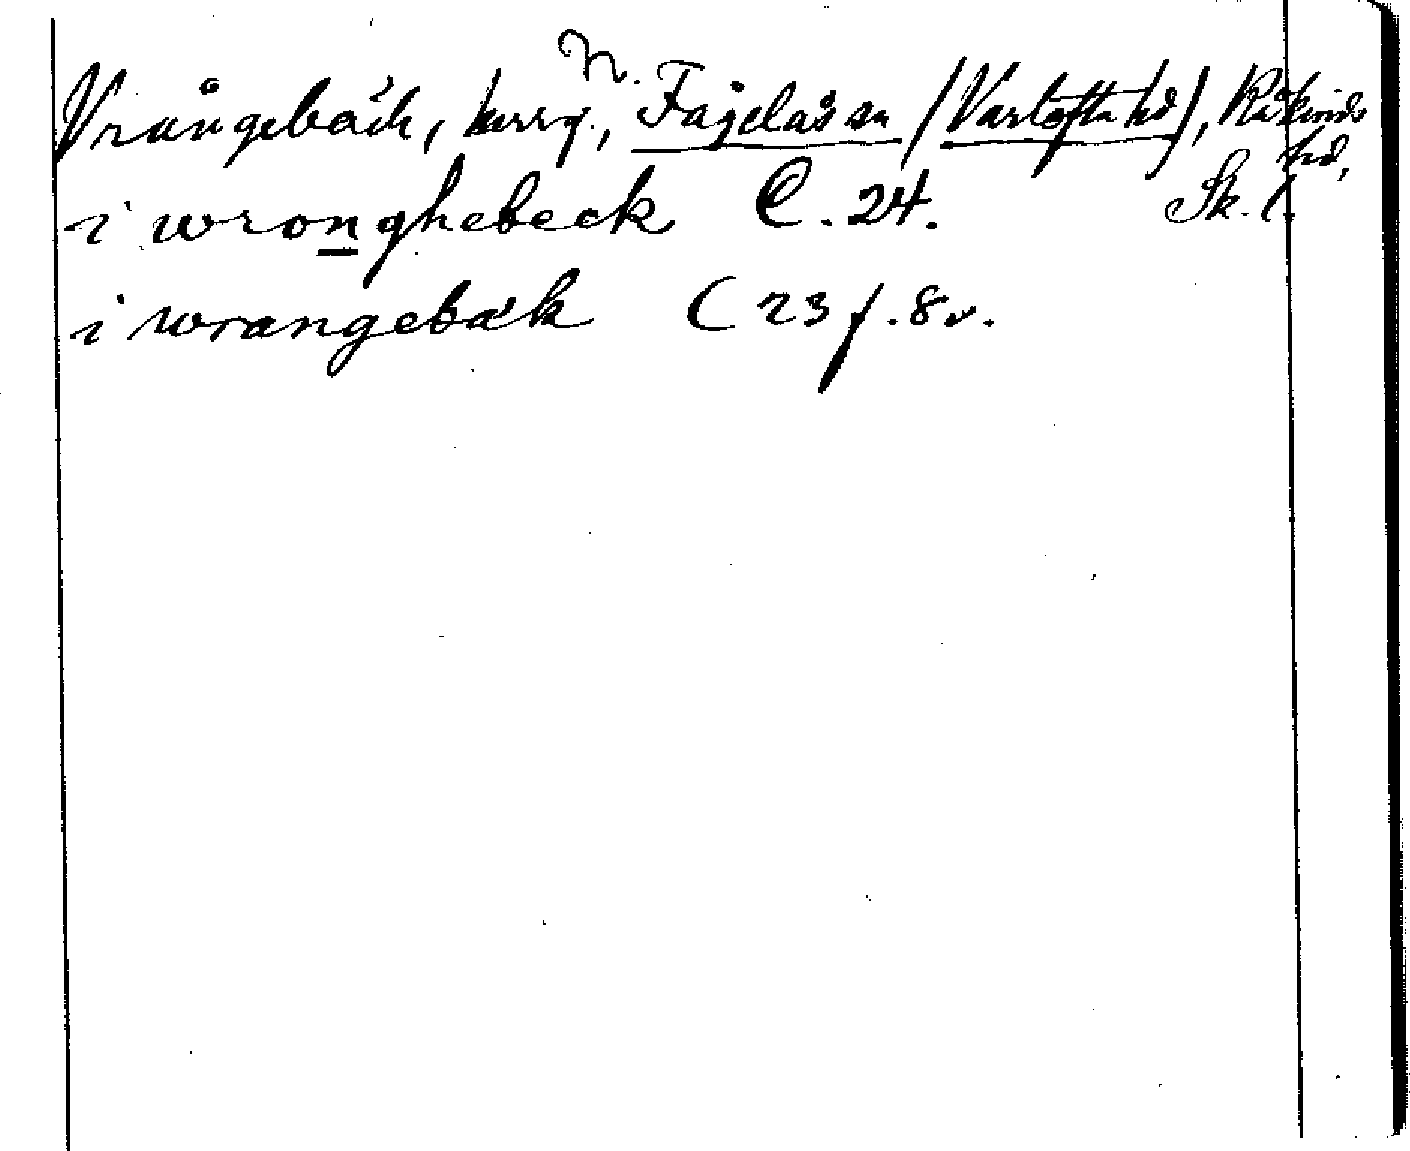 Vrångebäck, herrg., N. Fågelås sn (Vartofta hd), Kåkinds hd,
Sk. l.
i wronghebeck C. 24.
i wrangebäk C 23 f. 8v.